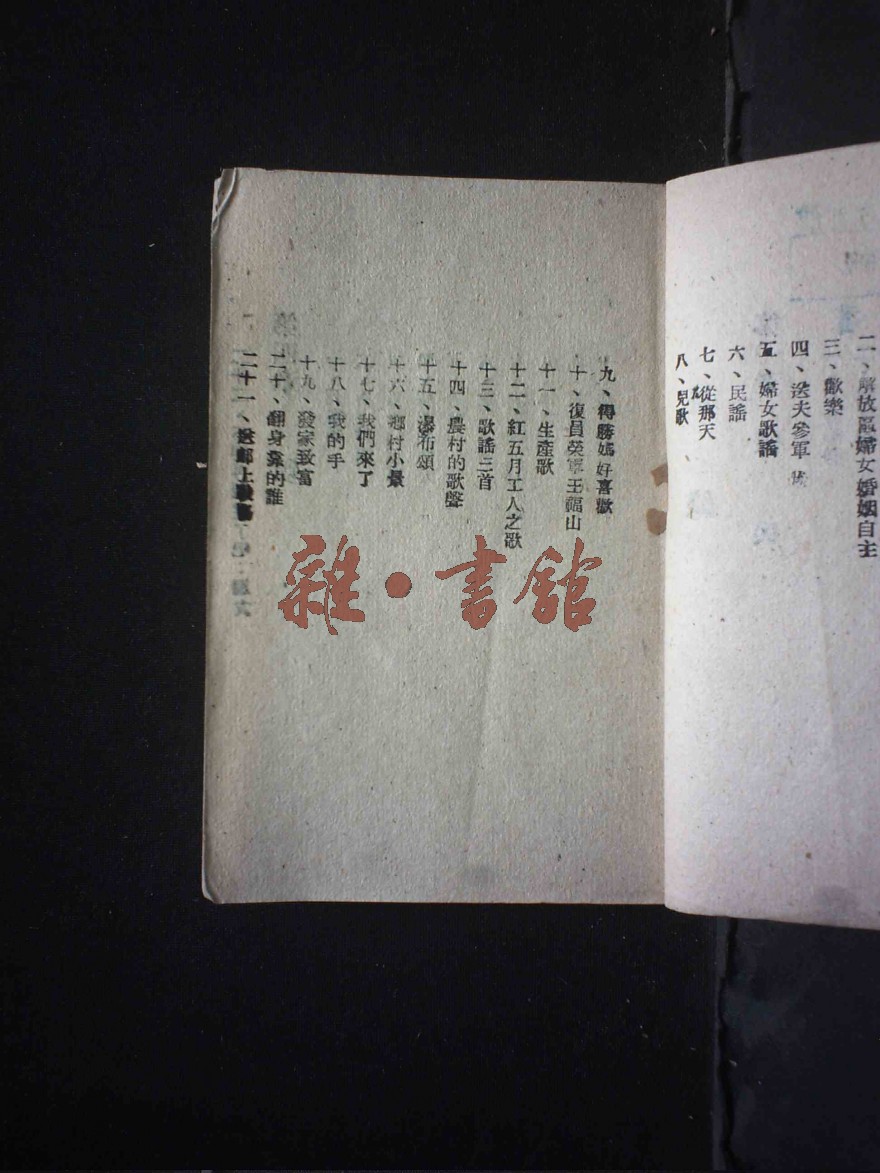 二、解放區婦女婚姻自主
三、歡樂
四、送夫參軍
五、婦女歌謠
六、民謠
七、從那天
八、兒歌
九、得勝媽好喜歡
十、復員榮軍王福山
十一、生產歌
十二、紅五月工人之歌
十三、歌謠三首
十四、農村的歌聲
十五、瀑布頌
十六、鄉村小景
十七、我們來了
十八、我的手
十九、發家致富
二十、翻身葉的誰
二十一、送郎上
雜·書館